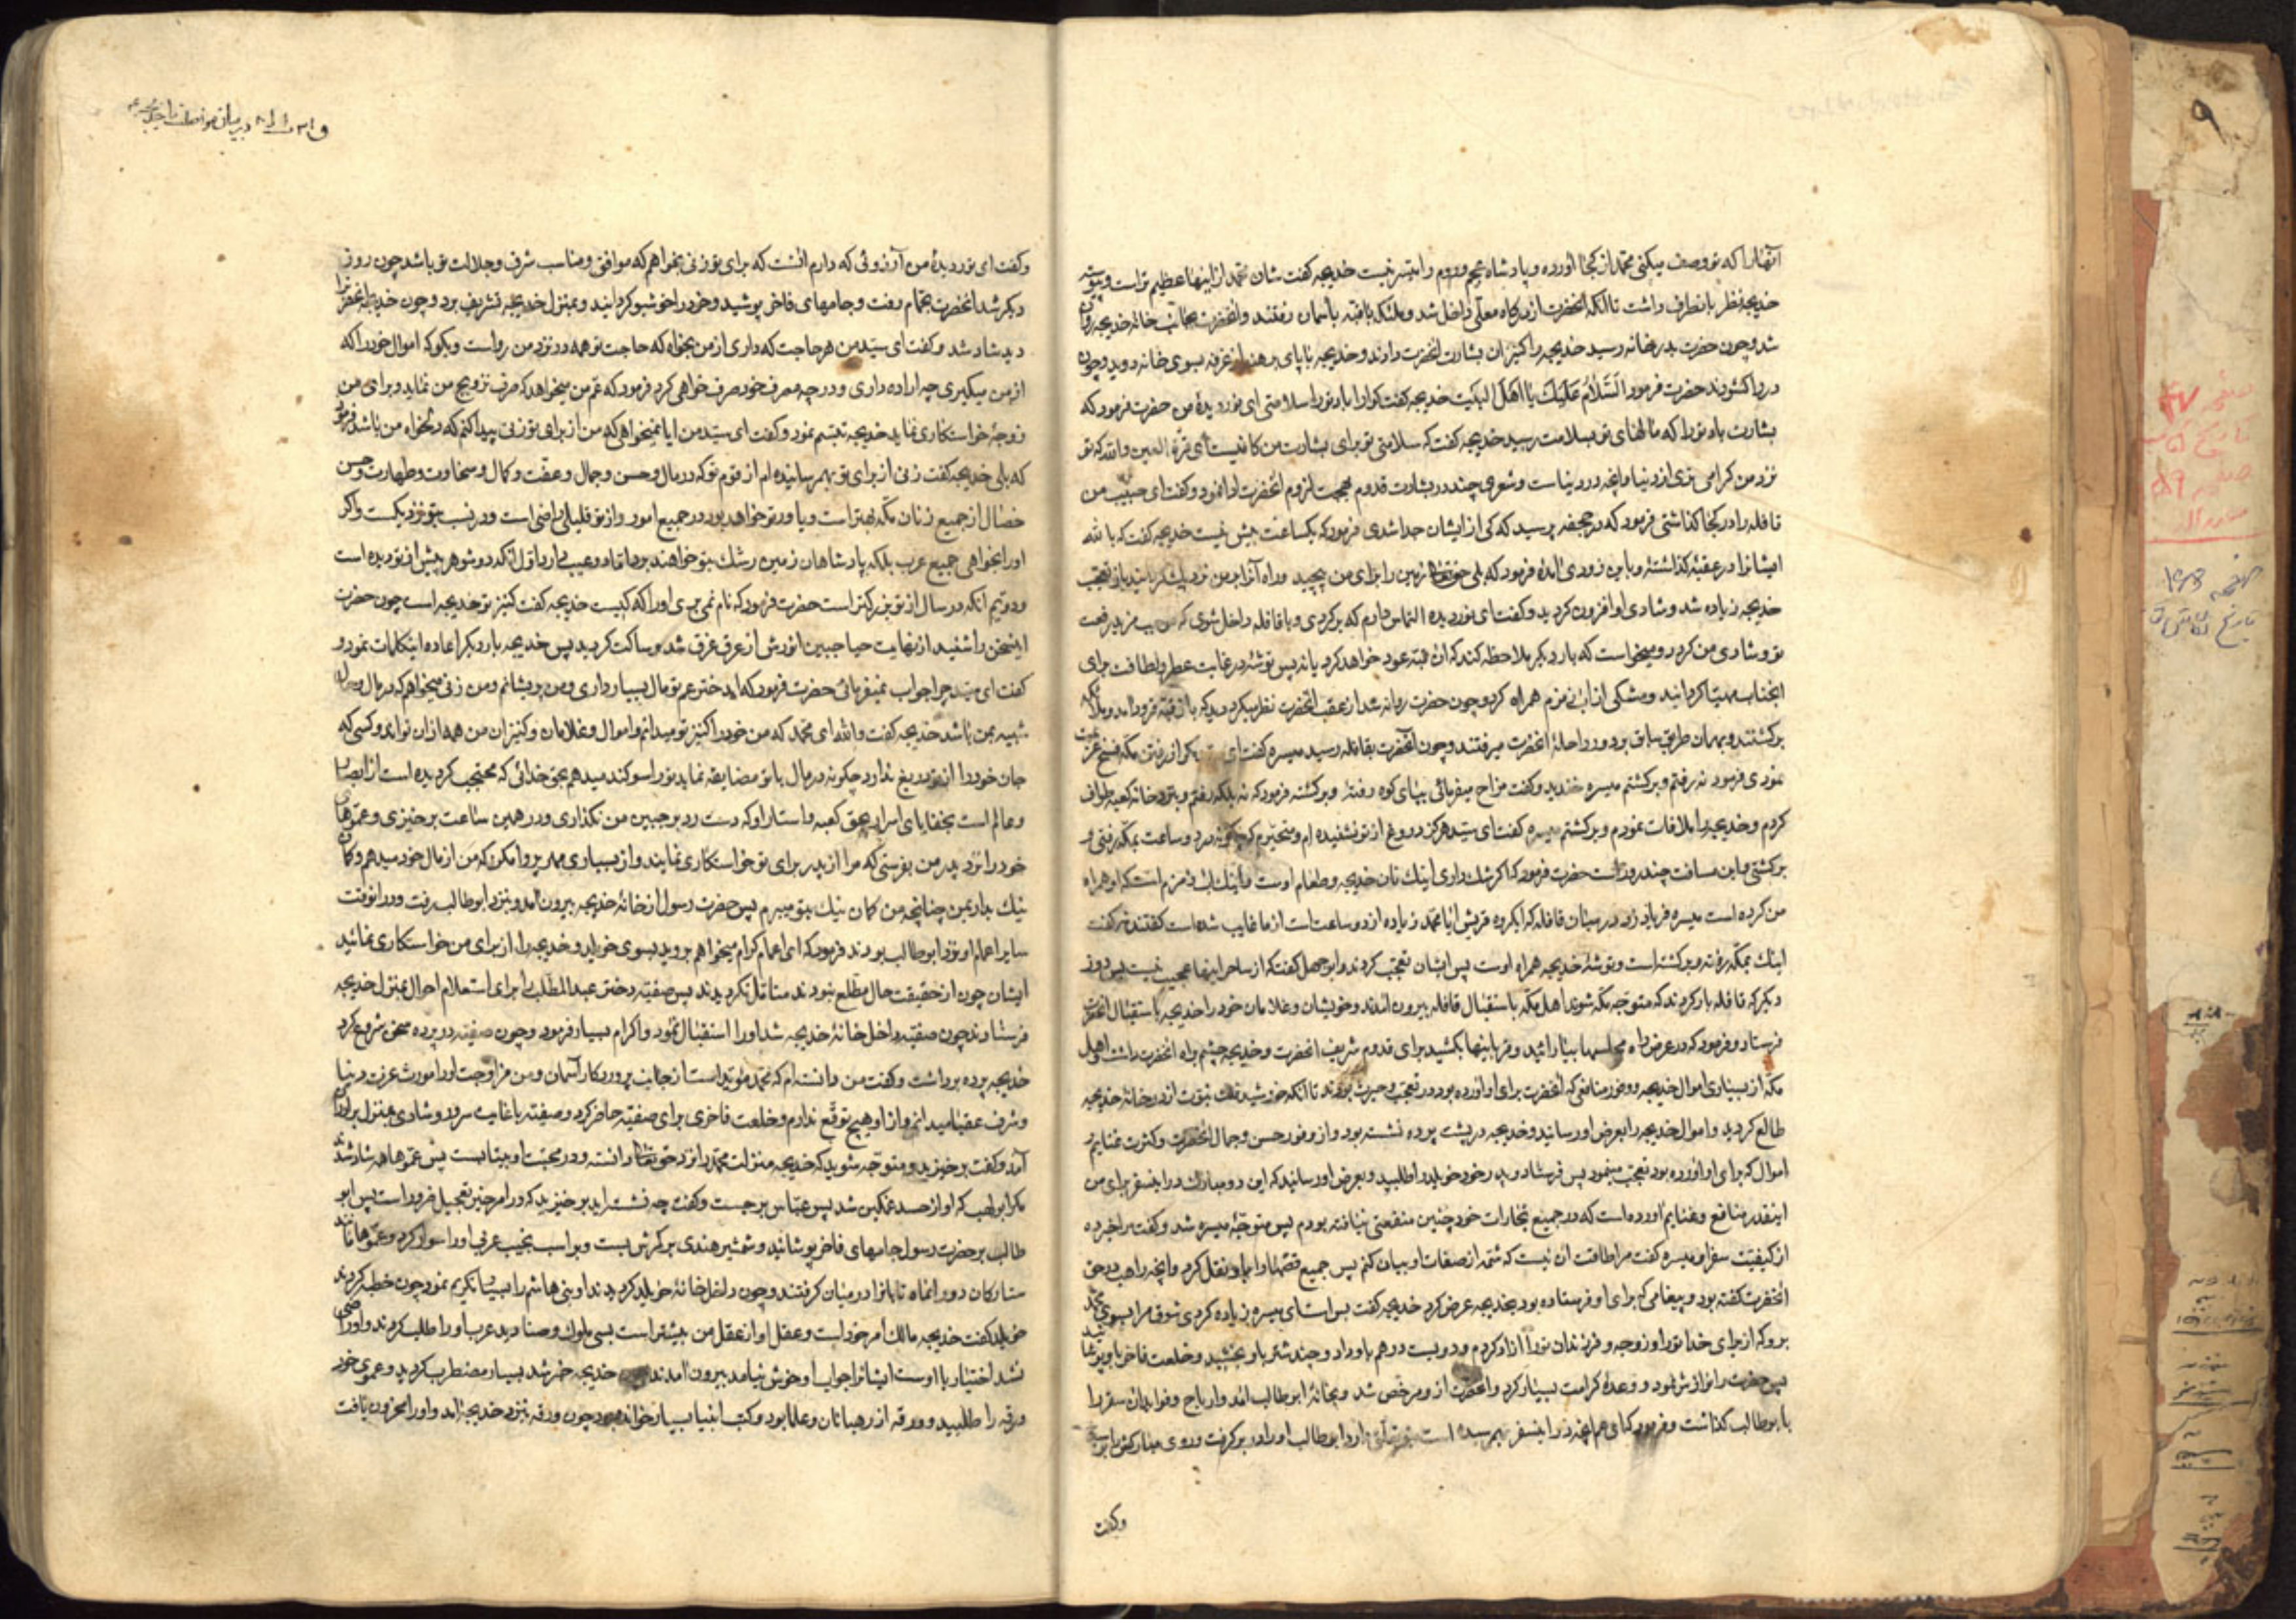 آنها را که تو وصف میکنی محمد از کجا آورده و پادشاه عجم و روم را میسر نیست خدیجه گفت شان محمد از اینها عظیم تر است و پیوسته
خدیجه نظر بانطرف داشت تا آنکه انحضرت از درگاه معلی داخل شد و ملئکه با قبه بآسمان رفتند و انحضرت بجانب خانه خدیجه روان
شد و چون حضرت بدر خانه رسید خدیجه را کنیزان بشارت انحضرت دادند و خدیجه با پای برهنه از غرفه بسوی خانه دوید و چون
در را گشودند حضرت فرمود السَّلامُ عَلَیکَ یا اهلَ البَیت خدیجه گفت گوارا باد تو را سلامتی ای نور دیدهٔ من حضرت فرمود که
بشارت باد تو را که مالهای تو بسلامت رسید خدیجه گفت که سلامتی تو برای بشارت من کافیست ای قرّة العین والله که تو
نزد من گرامی تری از دنیا و آنچه در دنیاست و شعری چند در بشارت قدوم بهجت لزوم انحضرت ادا نمود و گفت ای حبیب من
قافله را در کجا گذاشتی فرمود که در جحفه پرسید که کی از ایشان جدا شدی فرمود که یکساعت بیش نیست خدیجه گفت که بالله
ایشانرا در عقبه گذاشتهٔ و باین زودی آمدهٔ فرمود که بلی حق تعالی زمین را برای من پیچید و راه آنرا بر من نزدیک گردانید باز تعجب
خدیجه زیاده شد و شادی او افزون گردید و گفت ای نور دیده التماس دارم که برگردی و با قافله داخل شوی که موجب مزید رفعت
تو و شادی من گردد و میخواست که بار دیگر ملاحظه کند که آن قبه عود خواهد کرد یا نه پس توشهٔ در غایت عطر و لطافت برای
انجناب مهیا گردانید و مشکی از آب زمزم همراه کرد و چون حضرت روانه شد از عقب انحضرت نظر میکرد دید که باز قبه فرود آمد و ملائکه
برگشتند و بهمان طریق سابق بر دور راحلهٔ انحضرت میرفتند و چون آنحضرت بقافله رسید میسره گفت ای مگر از رفتن مکه فسخ عزیمت
نمودی فرمود نه رفتم و برگشتم میسره خندید و گفت مزاح میفرمائی بپای کوه رفتهٔ و برگشته فرمود که نه بلکه رفتم و بدور خانه کعبه طواف
کردم و خدیجه را ملاقات نمودم و برگشتم میسره گفت ای سید هرگز دروغ از تو نشنیده ام و متحیرم که چگونه در دو ساعت بمکه رفتی و
برگشتی و این مسافت چند روز است حضرت فرمود که اگر شک داری اینک نان خدیجه و طعام اوست و اینک آب زمزم است که او همراه
من کرده است میسره فریاد زد در میان قافله که ایگروه قریش ایا محمد زیاده از دو ساعت است از ما غایب شده است گفتند نه گفت
اینک بمکه رفته و برگشته است و توشهٔ خدیجه همراه اوست پس ایشان تعجب کردند و ابوجهل گفت که از ساحر اینها عجیب نیست پس روز
دیگر که قافله بار کردند که متوجه مکه شوند اهل مکه باستقبال قافله بیرون آمدند و خویشان و غلامان خود را خدیجه باستقبال انحضرت
فرستاد و فرمود که در عرض راه مجلسها بیارائید و قربانیها بکشید برای قدوم شریف انحضرت و خدیجه چشم براه انحضرت داشت و اهل
مکه از بسیاری اموال خدیجه و وفور منافعی که انحضرت برای او آورده بود در تعجب و حیرت بودند تا آنکه خورشید فلک نبوت از در خانهٔ خدیجه
طالع گردید و اموال خدیجه را بعرض او رسانید و خدیجه در پشت پرده نشسته بود و از وفور حسن و جمال انحضرت و کثرت غنایم و
اموال که برای او آورده بود تعجب مینمود پس فرستاد و پدر خود خویلد را طلبید و بعرض او رسانید که این رو مبارک در اینسفر برای من
اینقدر منافع و غنایم آورده است که در جمیع تجارات خود چنین منفعتی نیافته بودم پس متوجه میسره شد و گفت مرا خبر ده
از کیفیت سفر او میسره گفت مرا طاقت آن نیست که شمه از صفات او بیان کنم پس جمیع قصه‌ها و نقل کرد و آنچه راهب در حق
انحضرت گفته بود و پیغامی که برای او فرستاده بود بخدیجه عرض کرد خدیجه گفت بس است ای میسره زیاده کردی شوق مرا بسوی محمد
برو که از برای خدا تو را و زوجه و فرزندان تو را آزاد کردم و دویست درهم باو داد و چند شتر باو بخشید و خلعت فاخر باو پوشانید
پس حضرت را نوازش نمود و وعدهٔ کرامت بسیار کرد و انحضرت از او مرخص شد و بخانهٔ ابوطالب آمد و ارباح و فواید آن سفر را
با ابوطالب گذاشت و فرمود که ای عم آنچه در اینسفر بهم رسیده است ابوطالب او را در بر گرفت و روی مبارکش
و گفت
و گفت ای نور دیدهٔ من آرزوئی که دارم آنست که برای تو زنی بخواهم که موافق و مناسب شرف و جلالت تو باشد چون روز
دیگر شد انحضرت بحمام رفت و جامهای فاخر پوشید و خود را خوشبو گردانید و بمنزل خدیجه تشریف برد و چون خدیجه انحضرت را
دید شاد شد و گفت ای سید من هر حاجت که داری از من بخواه که حاجت تو همه در نزد من رواست و بگو که اموال خود را که
از من میگیری چه اراده داری و در چه مصرف خود صرف خواهی کرد فرمود که عم من میخواهد که صرف تزویج من نماید و برای من
زوجهٔ خواستکاری نماید خدیجه تبسم نمود و گفت ای سید من ایا نمیخواهی که من از برای تو زنی پیدا کنم که دلخواه من باشد فرمود
که بلی خدیجه گفت زنی از برای تو بهم رسانیده ام از قوم تو که در مال و حسن و جمال و عفت و کمال و سخاوت و طهارت و حسن
خصال از جمیع زنان مکه بهتر است و یاور تو خواهد بود در جمیع امور و از تو قلیلی راضی است و در نسب بتو نزدیکست و اگر
او را بخواهی جمیع عرب بلکه پادشاهان زمین رشک بتو خواهند برد اما دو عیب دارد اول آنکه دو شوهر پیش از تو دیده است
و دویم آنکه در سال از تو بزرگتر است حضرت فرمود که نام نمی بری او را که کیست خدیجه گفت کنیز تو خدیجه است چون حضرت
اینسخن را شنید از نهایت حیا جبین انورش از عرق غرق شد و ساکت گردید پس خدیجه بار دیگر اعاده اینکلمات نمود و
گفت ای سید چرا جواب نمیفرمائی حضرت فرمود که ای دختر عم تو مال بسیار داری و من پریشانم و من زنی میخواهم که در مال و حال
شبیه بمن باشد خدیجه گفت والله ای محمد که من خود را کنیز تو میدانم و اموال و غلامان و کنیزان من همه از آن تو اند و کسی که
جان خود را از تو دریغ ندارد چگونه در مال با تو مضایقه نماید تو را سوگند میدهم بحق خدائی که محتجب گردیده است از ابصار
و عالم است بخفایای اسرار بحق کعبه و استار او که دست رد بر جبین من نگذاری و در همین ساعت برخیزی و عموهای
خود را نزد پدر من بفرستی که مرا از پدر برای تو خواستکاری نمایند و از بسیاری مهر پروا مکن که من از مال خود میدهم و گمان
نیک بدار بمن چنانچه من گمان نیک بتو میبرم پس حضرت رسول از خانهٔ خدیجه بیرون آمد و بنزد ابوطالب رفت و در انوقت
سایر اعمام او نزد ابوطالب بودند فرمود که ای اعمام گرام میخواهم بروید بسوی خویلد و خدیجه را از برای من خواستکاری نمائید
ایشان چون از حقیقت حال مطلع نبودند متامل گردیدند پس صفیه دختر عبدالمطلب را برای استعلام احوال بمنزل خدیجه
فرستادند چون صفیه داخل خانهٔ خدیجه شد او را استقبال نمود و اکرام بسیار فرمود و چون صفیه در پرده سخن شروع کرد
خدیجه پرده برداشت و گفت من دانسته ام که محمد مؤید است از جانب پروردگار آسمان و من مزاوجت او را مورث عزت دنیا
و شرف عقبی میدانم و از او هیچ توقع ندارم و خلعت فاخری برای صفیه حاضر کرد و صفیه با غایت سرور و شادی بمنزل برادران
آمد و گفت برخیزید و متوجه شوید که خدیجه منزلت محمد را نزد حق تعالی دانسته و در محبت او بیتابست پس عموها همه شاد شدند
مگر ابولهب که او از حسد غمگین شد پس عباس برجست و گفت چه نشسته اید برخیزید که در امر چنین تعجیل ضرور است پس ابو
طالب بر حضرت رسول جامهای فاخر پوشانید و شمشیر هندی بر کمرش بست و بر اسب نجیب عربی او را سوار کرد و عموها مانند
ستارگان دور انماه تابانرا در میان گرفتند و چون داخل خانهٔ خویلد گردیدند او بنی هاشم را بسیار تکریم نمود چون خطبه کردند
خویلد گفت خدیجه مالک امر خود است و عقل او از عقل من بیشتر است بسی ملوک و صنادید عرب او را طلب کردند و او راضی
نشد اختیار با اوست ایشانرا جواب او خوش نیامد بیرون آمدند خدیجه خبر شد بسیار مضطرب گردید و عموی خود
ورقه را طلبید و ورقه از رهبانان و علما بود و کتب انبیا بسیار خوانده بود چون ورقه بنزد خدیجه آمد و او را محزون یافت